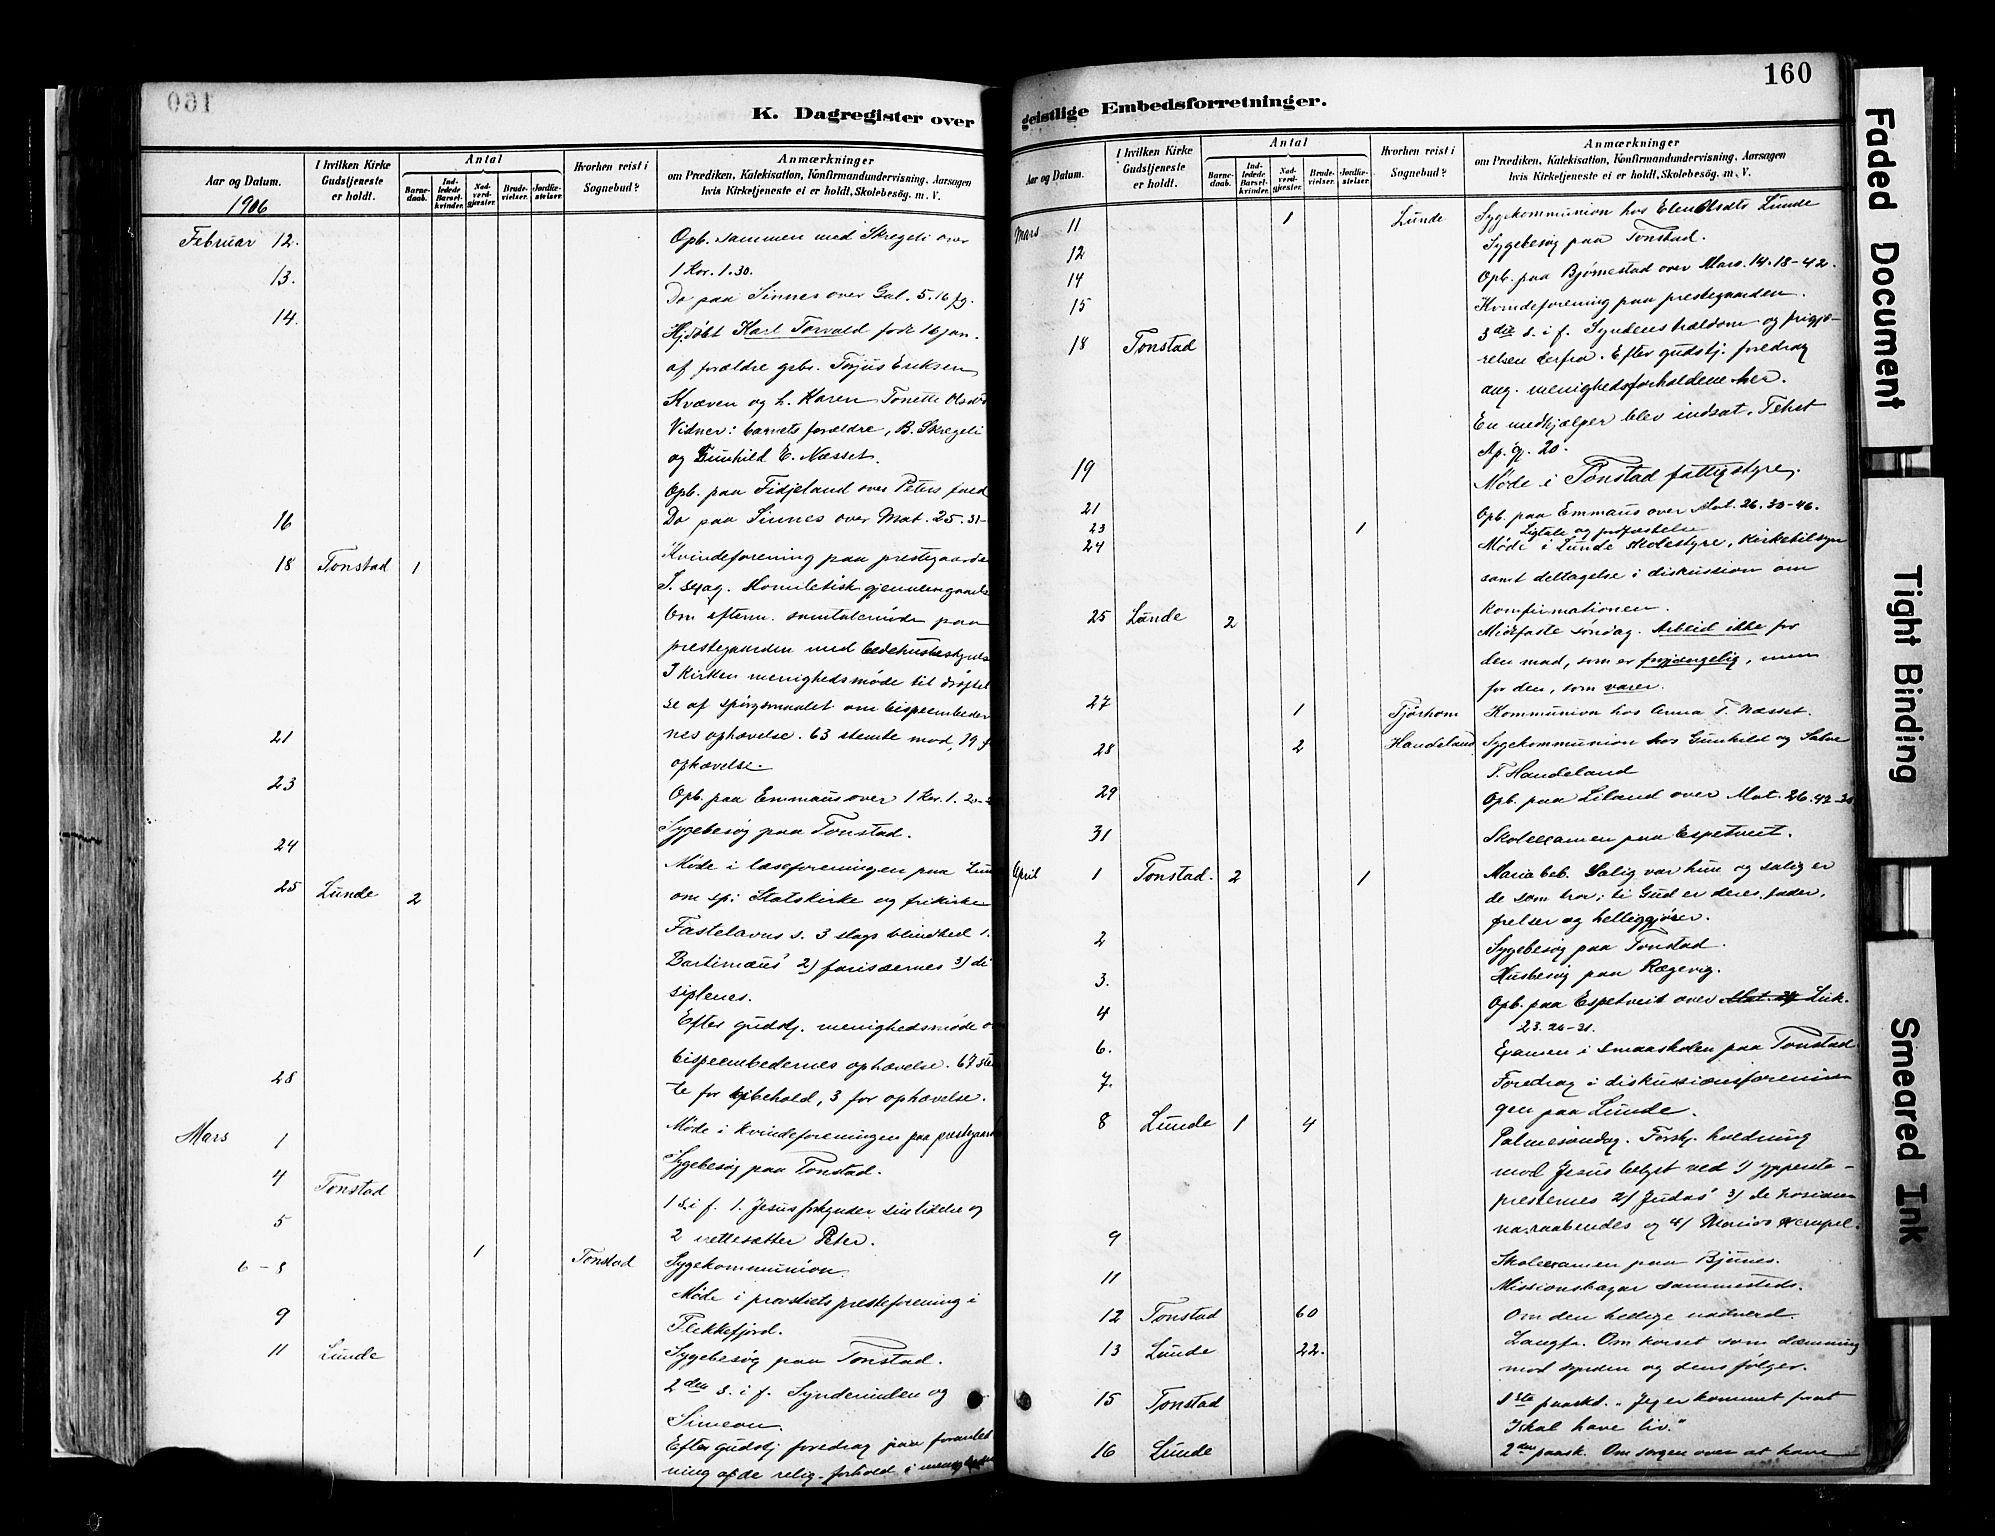 160
K. Dagregister over
Aar og Datum.
I hvilken Kirke Gudstjeneste er holdt.
Antal
Barnedaab.
Indledede Barselkvinder.
Nadverdgjester.
Brudevielser.
Jordfæstelser.
Hvorhen reist i Sognebud?
Anmærkninger
om Prædiken, Katekisation, Konfirmandundervisning, Aarsagen
hvis Kirketjeneste ei er holdt, Skolebesøg. m. V.
1906
Februar 12. Opb. sammen med Skregeli over
1 Kor. 1.30.
13. Do paa Sinnes over Gal. 5.16 fg.
14. Hjdøbt Karl Torvald født 16 jan.
af forældre gbr. Torjus Eriksen
Kvæven og h. Karen Tonette Olsd
Vidner: barnets forældre, B. Skregeli
og Gunhild E. Næsset.
Opb. paa Fidjeland over Peters fald
16 Do paa Sinnes over Mat. 25. 31-
Kvindeforening paa prestegaarde
18 Tonstad 1 S. sexag. Homiletisk gjennemgaaelse
Om efterm. samtalemøde paa
prestegaarden med bedehusbestyrels
I kirken menighedsmøde til drøftel
se af spørgsmaalet om bispeembeder
nes ophævelse. 63 stemte mod, 19 f
ophævelse.
21 Opb. paa Emmaus over 1 Kor. 1. 20-
23 Sygebesøg paa Tonstad.
24 Møde i læseforeningen paa Lun
om sp: Statskirke og frikirke
25 Lunde 2 Fastelavns s. 3 slags blindhed 1.
Bartimæus' 2) farisæernes 3) di
siplenes.
Efter gudstj. menighedsmøde om
bispeembedernes ophævelse. 67 stem
te for bibehold, 3 for ophævelse.
28 Møde i kvindeforeningen paa prestegaarden
Mars 1 Sygebesøg paa Tonstad.
4 Tonstad 1 s. i f. 1. Jesus forkynder sin lidelse og
2 rettesætter Peter.
5 1 Tonstad Sygekommunion
6-8 Møde i provstiets presteforening i
Flekkefjord.
9 Sygebesøg paa Tonstad.
11 Lunde 2den s. i f. Synderinden og
Simeon
Efter gudstj foredrag paa foranled
ning af de relig. forhold i menigheden

160
geistlige Embedsforretninger.
Aar og Datum.
I hvilken Kirke Gudstjeneste er holdt.
Antal
Barnedaab.
Indledede Barselkvinder.
Nadverdgjester.
Brudevielser.
Jordfæstelser.
Hvorhen reist i Sognebud?
Anmærkninger
om Prædiken, Katekisation, Konfirmandundervisning, Aarsagen
hvis Kirketjeneste ei er holdt, Skolebesøg. m. V.
Mars 11 1 Lunde Sygekommunion hos Elen Olsdts Lunde
12 Sygebesøg paa Tonstad.
14 Opb. paa Bjørnestad over Marc. 14. 18-42.
15 Kvindeforening paa prestegaarden.
18 Tonstad 3die s. i f. Syndens trældom og frigjø-
relsen derfra. Efter gudstj. foredrag
ang. menighedsforholdene her.
En medhjælper blev indsat. Tekst
Ap. gj. 20.
19 Møde i Tonstad fattigstyre.
21 Opb. paa Emmaus over Mat. 26. 33-46.
23 1 Ligtale og jordfæstelse
24 Møde i Lunde skolestyre, kirketilsyn
samt deltagelse i diskussion om
konfirmationen.
25 Lunde 2 Midfaste søndag. Arbeid ikke for
den mad, som er forgjængelig, men
for den, som varer.
27 1 Tjørhom Kommunion hos Anna T. Næsset.
28 2 Handeland Sygekommunion hos Gunhild og Salve
T. Handeland
29 Opb. paa Liland over Mat. 26. 42-
31 Skoleexamen paa Espetveit.
April 1 Tonstad. 2 1 Maria beb. Salig var hun og salig er
de som tror; ti Gud er deres fader,
frelser og helliggjører.
2 Sygebesøg paa Tonstad.
3. Husbesøg paa Rægevig.
4 Opb. paa Espetveit over Luk.
23. 26-31.
6. Examen i smaaskolen paa Tonstad
7. Foredrag i diskussionsforenin
gen paa Lunde.
8 Lunde 1 4 Palmesøndag. Forskj. holdning
mod Jesus belyst ved 1) ypperste-
presternes 2) Judas' 3) de hosian
na raabendes og 4) Marias exempel.
9 Skoleexamen paa Bjunes.
11 Missionsbazar sammesteds.
12 Tonstad 60 Om den hellige nadverd.
13 Lunde 22. Langfr. Om korset som dæmning
mod synden og dens følger.
15 Tonstad 1ste paaskd. "Jeg er kommet forat
I skal have liv."
16 Lunde 2den paask. Om sorgen over at have
Faded Document
Tight Binding
Smeared Ink